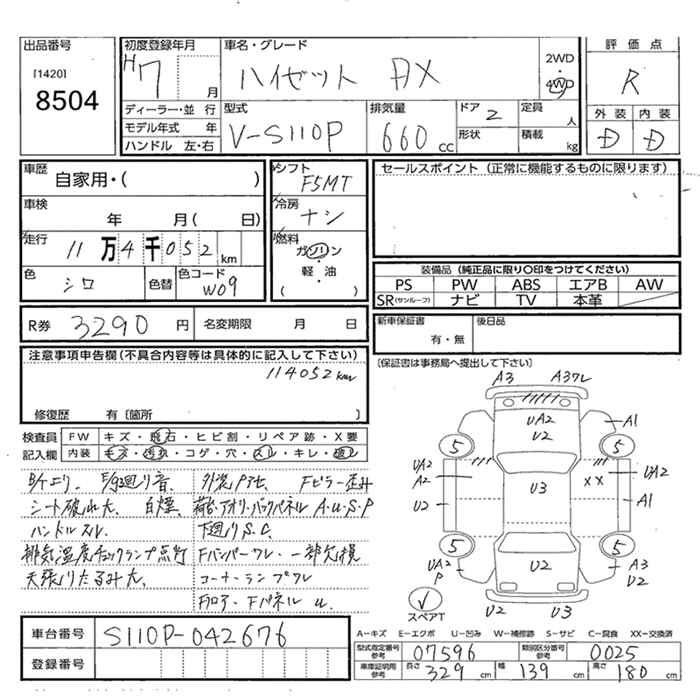 出品番号
[1420]
8504
初度登録年月
H7 月
車名・グレード
ハイゼット AX
2WD
・
4WD
評価点
R
ディーラー・並行
モデル年式 年
ハンドル 左・右
型式
V-S110P
排気量
660 cc
ドア 2
形状
定員 人
積載 kg
外装 内装
D D
車歴
自家用・( )
車検
年 月( 日)
走行
11万4千052km
色
シロ
色替
色コード
W09
シフト
F5MT
冷房
ナシ
燃料
ガソリン
・
軽・油
( )
セールスポイント (正常に機能するものに限ります)
装備品 (純正品に限り○印をつけてください)
PS PW ABS エアB AW
SR(サンルーフ) ナビ TV 本革
R券 3290 円
名変期限 月 日
新車保証書
有・無
後日品
注意事項申告欄(不具合内容等は具体的に記入して下さい)
114052km
修復歴 有〔箇所 〕
〔保証書は事務局へ提出して下さい〕
検査員
記入欄
FW キズ・飛石・ヒビ割・リペア跡・X要
内装 キズ・汚れ・コゲ・穴・スレ・キレ・破レ
シート破れ大. 白煙.
ハンドルスレ.
下廻りS.C.
排気温度チェックランプ点灯
Fバンパーワレ. 一部欠損
天張りたるみ大.
コーナーランプワレ
A3 A3ワレ
UA2
U2
A1
5 5
UA2
A2
U2
U3
XX
UA2
A1
5 5
UA2
P
U2
A3
U2
スペアT
U2 U3
車台番号 S110P-042676
登録番号
A-キズ E-エクボ U-凹み W-補修跡 S-サビ C-腐食 XX-交換済
型式指定番号
参考
07596
類別区分番号
参考
0025
車庫証明用
参考
長さ 329 cm
幅 139 cm
高さ 180 cm